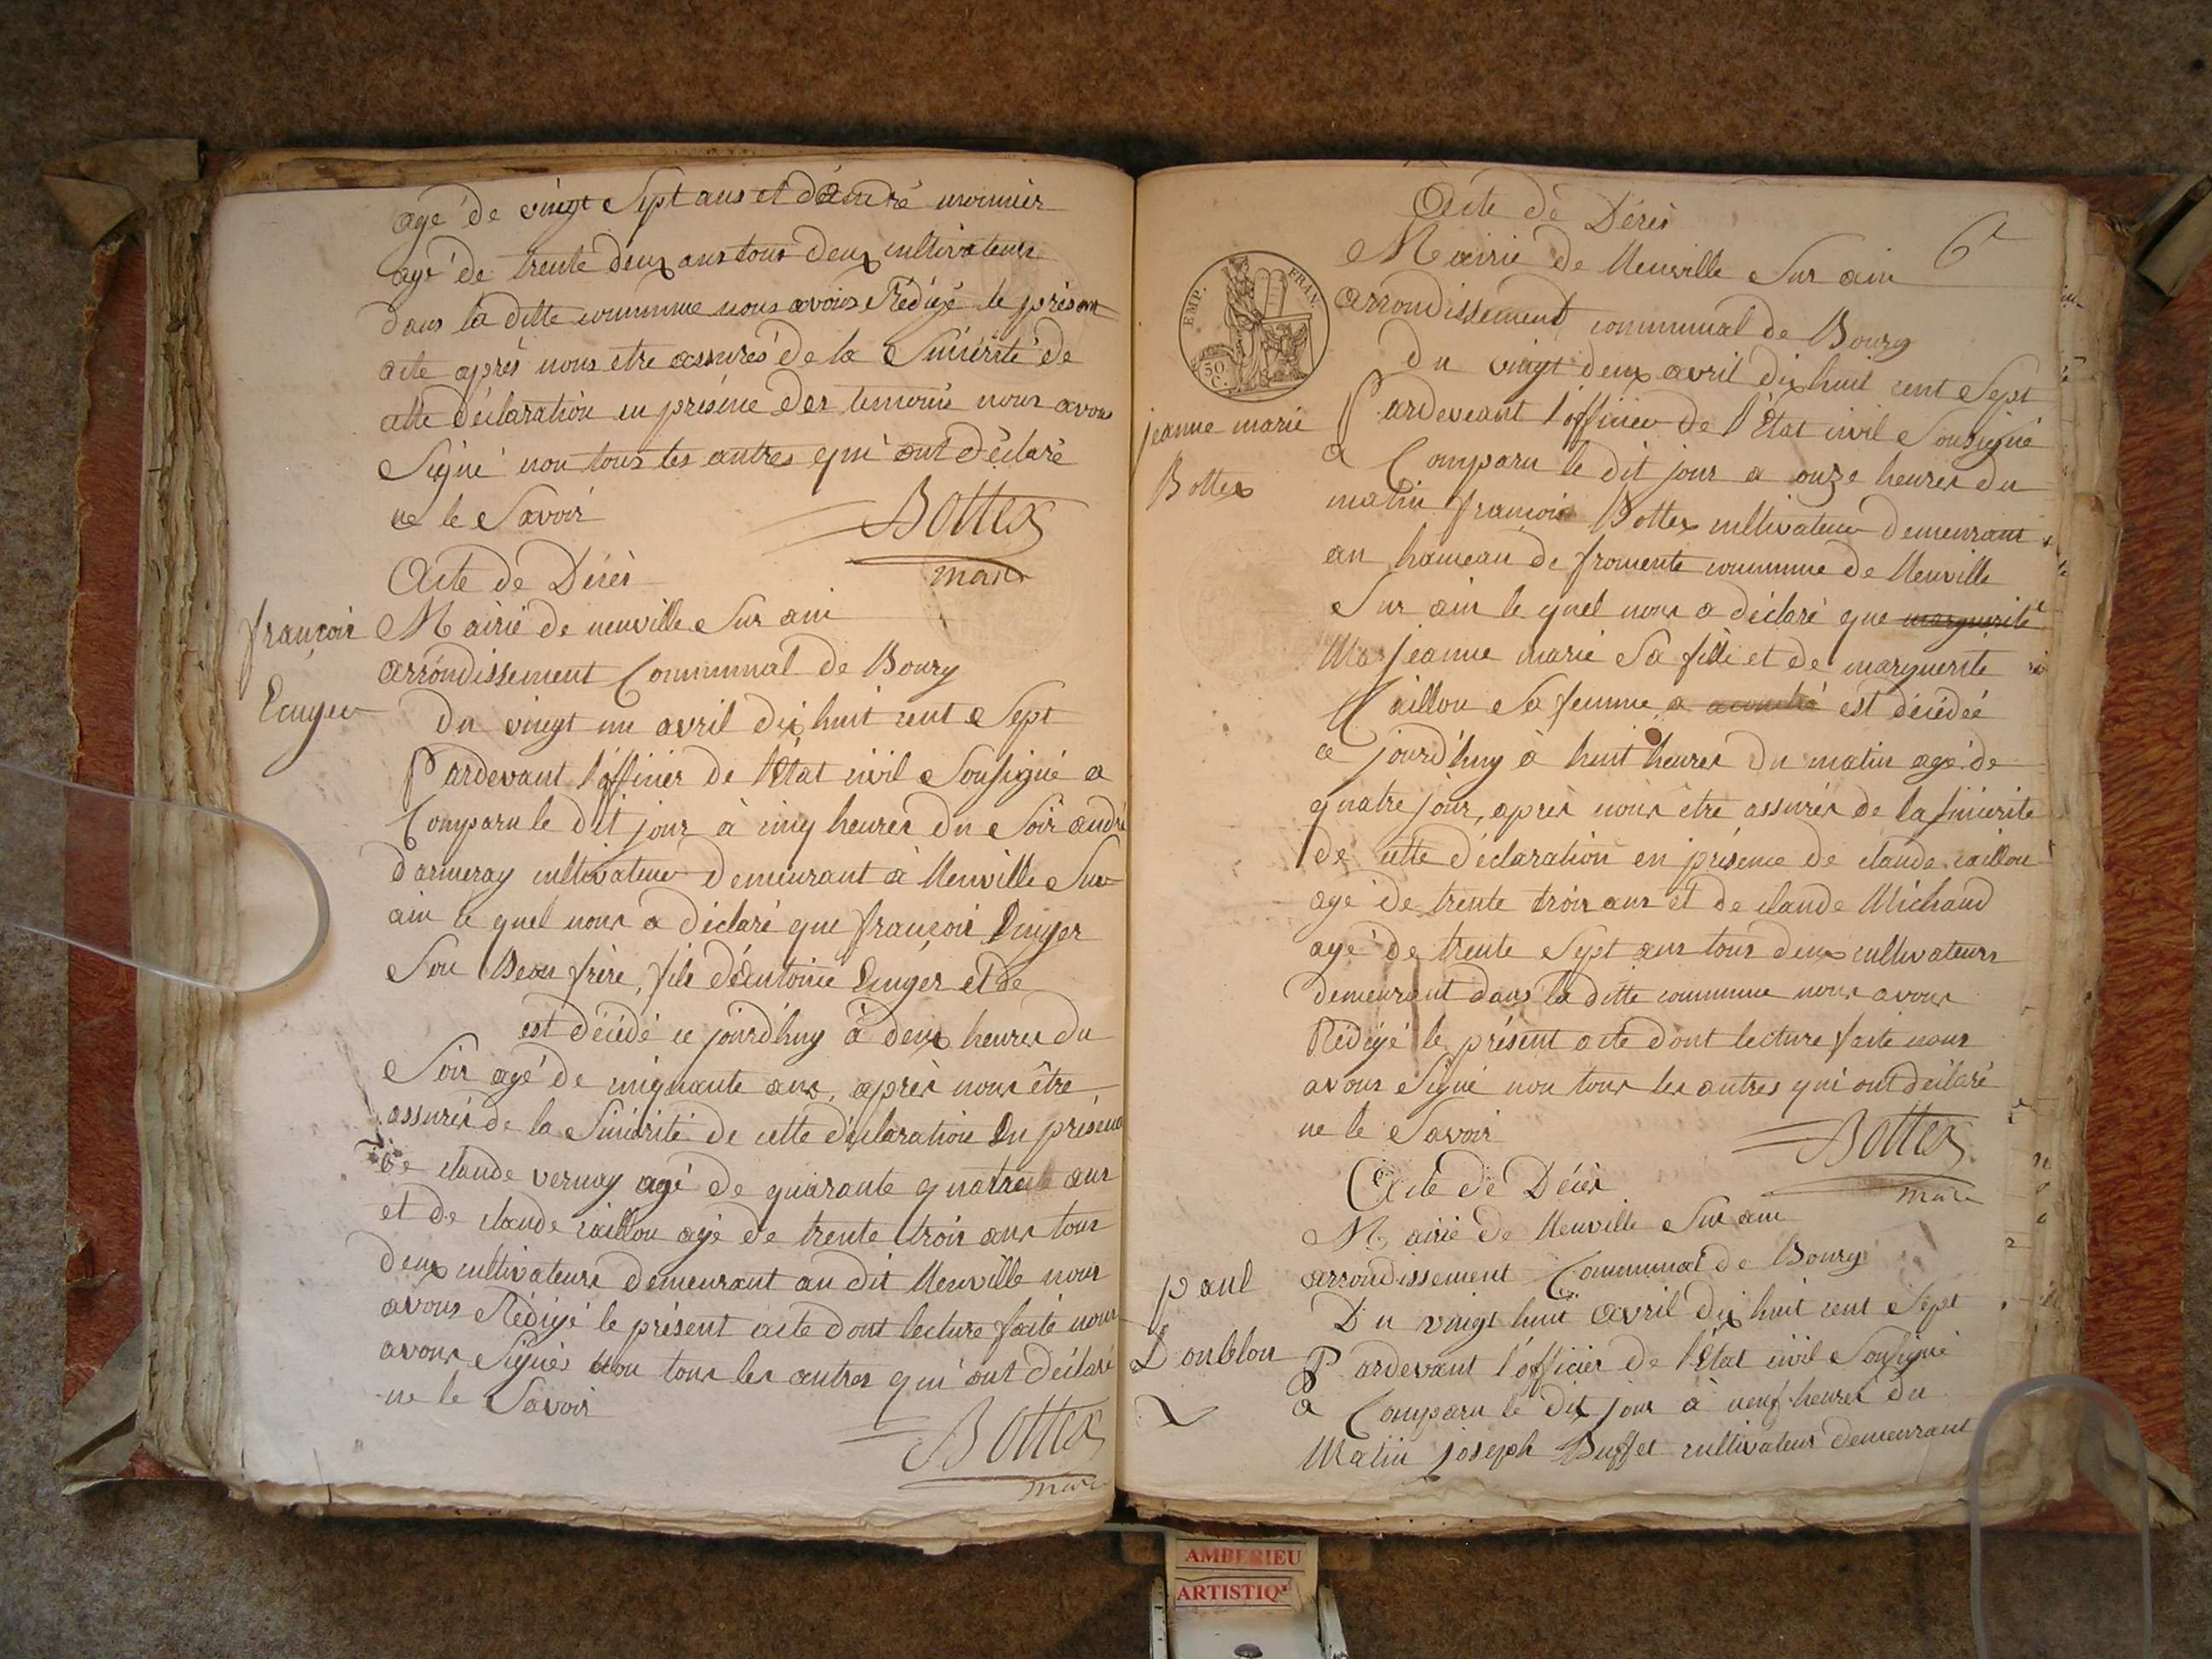 agé de vingt Sept ans et d'andré monnier
agé de trente deux ans tous deux cultivateurs
dans la ditte commune nous avons Rédigé le présent
acte après nous etre assurés de la Sincérité de
cette déclaration en présence des temoins nous avons
Signé non tous les autres qui ont déclaré
ne le Savoir
Bottex
maire
Acte de Décès
françois
Mairie de neuville Sur ain
arrondissement Communal de Bourg
Du vingt un avril dix huit cent Sept
Pardevant l'officier de l'Etat civil Sousigné a
Comparu le dit jour à cinq heures du Soir andré
darmeray cultivateur demeurant à Neuville Sur
ain le quel nous a déclaré que françois
Son Beau frère, fils d'Antoine et de
est décédé ce jourd'huy à deux heures du
Soir agé de cinquante ans, après nous être
assurés de la Sincérité de cette déclaration En présence
de claude vernay agé de quarante quatre ans
et de claude caillou agé de trente trois ans tous
deux cultivateurs demeurant au dit Neuville nous
avons Rédigé le présent acte dont lecture faite nous
avons Signés non tous les autres qui ont déclaré
ne le Savoir
Bottex
maire
Acte de Décès
Mairie de Neuville Sur ain
6
arrondissement communal de Bourg
EMP. FRAN.
50 C.
Du vingt deux avril dix huit cent Sept
jeanne marie
Bottex
Pardeveant l'officier de l'Etat civil Sousigné
a Comparu le dit jour a onze heures du
matin françois Bottex cultivateur demeurant
au hameau de fromente commune de Neuville
Sur ain le quel nous a déclaré que marguerite
Mar jeanne marie Sa fille et de marguerite
Caillou Sa femme a est décédée
ce jourd'huy à huit heures du matin agé de
quatre jour, après nous être assurés de la sincérité
de cette déclaration en présence de claude caillou
agé de trente trois ans et de claude Michaud
agé de trente Sept ans tous deux cultivateurs
demeurant dans la ditte commune nous avons
Rédigé le présent acte dont lecture faite nous
avons Signé non tous les autres qui ont déclaré
ne le Savoir
Bottex
maire
Acte de Décès
Mairie de Neuville Sur ain
paul
Doublon
arrondissement Communal de Bourg
Du vingt huit avril dix huit cent Sept
Pardevant l'officier de l'Etat civil Sousigné
a Comparu le dit jour à neuf heures du
Matin joseph Buffet cultivateur demeurant
AMBERIEU
ARTISTIQ